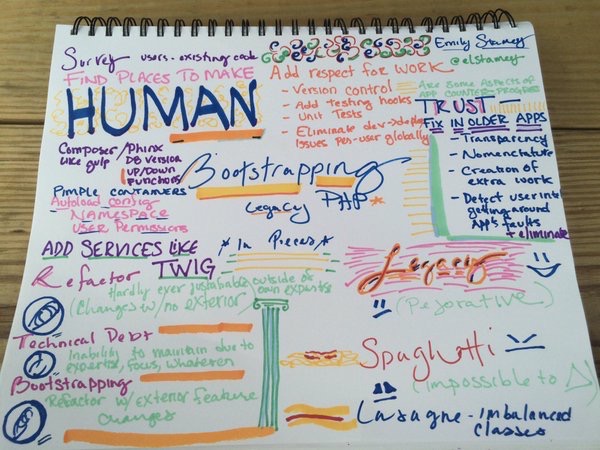 Survey users - existing code
FIND PLACES TO MAKE
HUMAN
Composer/Phinx
like gulp
DB version
UP/DOWN
functions
PIMPLE CONTAINERS
Autoload config
NAMESPACE
USER Permissions
ADD SERVICES LIKE
TWIG
Refactor
Hardly ever justifiable outside of
own expertis
(Changes w/ no exterior)
Technical Debt
Inability to maintain due to
expertis, focus, whatever
Bootstrapping
Refactor w/ exterior feature
changes
Bootstrapping
Legacy PHP
* In Pieces *
Add respect for WORK
- Version control
- Add testing hooks
- Unit Tests
- Eliminate dev->deploy
Issues per-user globally
Emily Stamey
@elstamey
Are some aspects of
APP COUNTER-PROGRESS
TRUST
Fix IN OLDER APPS
- Transparency
- Nomenclature
- Creation of
extra work
- Detect user int
getting around
App's faults
+ eliminate
Legacy
(Pejorative)
Spaghetti
(impossible to Δ)
Lasagne - imbalanced
classes